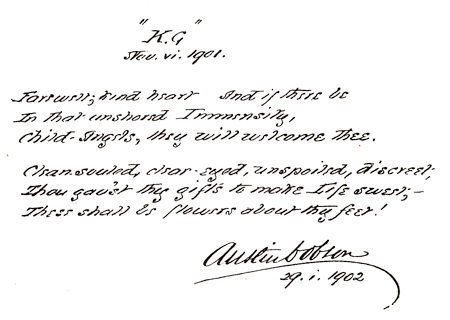 "K.G"
Nov. vi. 1901.
Farewell, kind heart And if there be
In that unshored Immensity,
Child-Angels, they will welcome thee.
Clean-souled, clear-eyed, unspoiled, discreet,
Thou gav'st thy gifts to make Life sweet,—
These shall be flowers about thy feet!
Austin Dobson
29. i. 1902